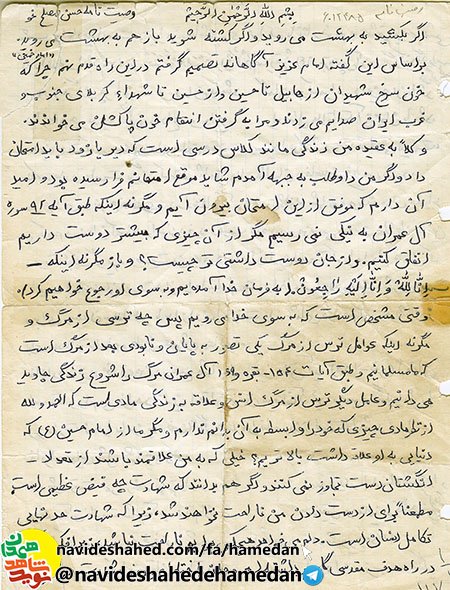 بسم الله الرحمن الرحیم
وصیت نامه حسن
اگر بکشید به بهشت می روید و اگر کشته شوید باز هم به بهشت می روید.
«امام خمینی»
بر اساس این گفته امام عزیز آگاهانه تصمیم گرفتم در این راه قدم نهم چرا که
خون سرخ شهیدان از هابیل تا حسین و از حسین تا شهدای کربلای جنوب و
غرب ایران صدایم می زدند و مرا به گرفتن انتقام خون پاکشان می خواندند.
و کلاً به عقیده من زندگی مانند کلاس درسی است که دیر یا زود باید امتحان
داد و اگر من داوطلب به جبهه آمدم شاید موقع امتحانم فرا رسیده بود و امید
آن دارم که موفق از این امتحان بیرون آیم و مگر نه اینکه طبق آیه ۹۲ سوره
آل عمران به نیکی نمی رسیم مگر از آن چیزی که بیشتر دوست داریم
انفاق کنیم. و از جان دوست داشتنی تر چیست؟ و باز مگر نه اینکه -
انا لله و انا الیه راجعون. (به فرمان خدا آمده ایم و به سوی او رجوع خواهیم کرد).
وقتی مشخص است که به سوی خدا می رویم پس چه ترسی از مرگ و
مگر نه اینکه عوامل ترس از مرگ یکی تصور به پایان و نابودی بعد از مرگ است
که ما مسلمانیم و طبق آیات بقره و آل عمران مرگ را شروع زندگی جاوید
می دانیم و عامل دیگر ترس از مرگ و علاقه به زندگی مادی است که الحمدلله
از نظر مادی چیزی که خود را وابسته به آن بدانم ندارم و مگر ما از امام حسین (ع) که
دنیایی به او علاقه داشت بالاتریم؟ خیلی که به من علاقمند باشند از تعداد -
انگشتان دست تجاوز نمی کنند و اگر هم بدانند که شهادت چه فیض عظیمی است
مطمئناً برای از دست دادن من ناراحت نخواهند شد، زیرا که شهادت حد نهایی
تکامل انسان است.
در راه هدف مقدسی
navideshahed.com/fa/hamedan
@navideshahedehamedan
نوید شاهد همدان